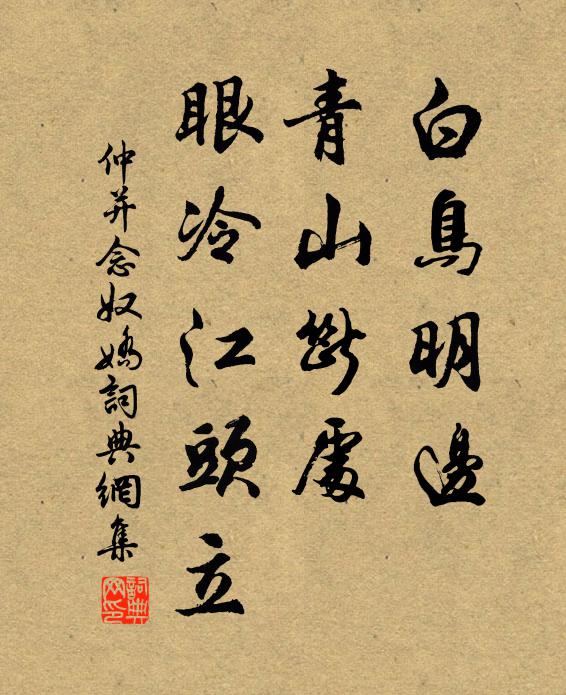 白鳥明邊
青山斷處
眼冷江頭立
仲并念奴嬌詞典網集
詞典网印